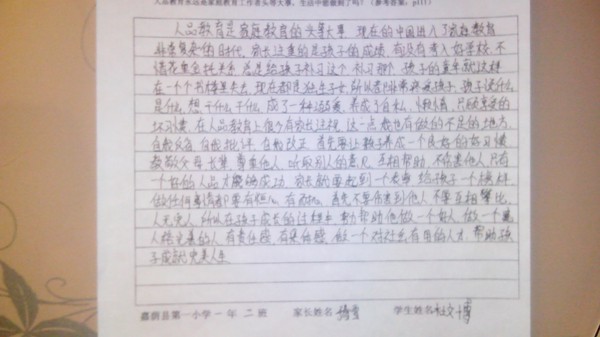 人品教育永远是家庭教育工作者头等大事，生活中您做到了吗？（参考答案：p111）
人品教育是家庭教育的头等大事 现在的中国进入了家庭教育
的时代，家长注重的是孩子的成绩 有没有考入好学校，不
惜花重金托关系 总是给孩子补习这个 补习那个 孩子的童年就这样
在一个个 现在都是独生子女 所以 孩子 孩子说什么
是什么 想干什么干什么 成了一种溺爱 养成了自私 懒惰 只顾享受的
坏习惯 在人品教育上很少有家长注视 这一点我也有做的不足的地方
自我反省 自我批评 自我改正 首先要让孩子养成一个良好的好习惯
父母长辈 尊重他人 听取别人的意见 互相帮助 不伤害他人 只有
一个好的人品才能够成功 家长就要起到一个表率 给孩子一个榜样
做任何事情都要有恒心 有耐心 首先不要伤害到他人 不要互相攀比
人无完人 所以在孩子成长的过程中 帮助他做一个好人 做一个
人格完美的人 有责任感 有集体感 做一个对社会有用的人才 帮助孩
子成就完美人生
嘉荫县第一小学一年 二 班 家长姓名 学生姓名 博